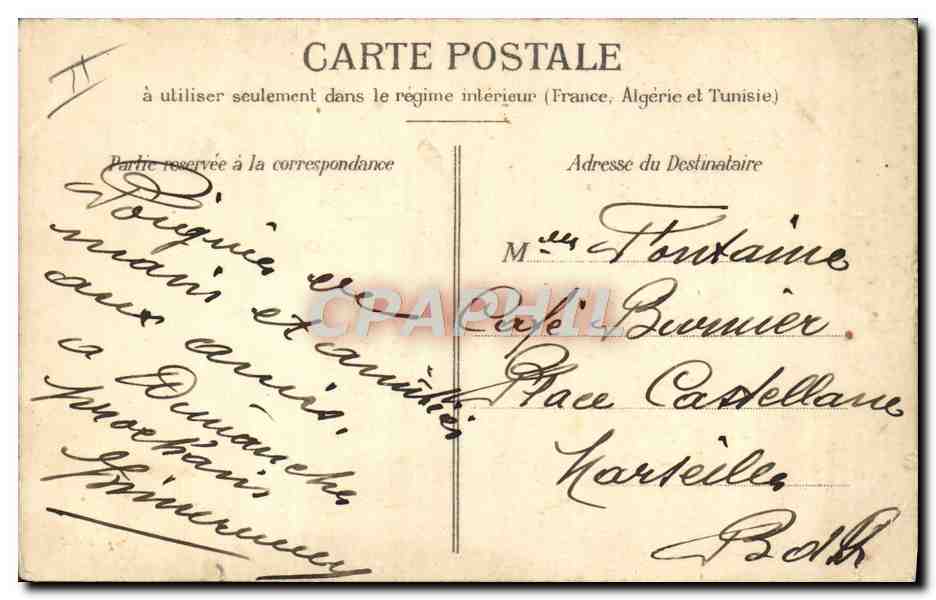 CARTE POSTALE
à utiliser seulement dans le régime intérieur (France, Algérie et Tunisie)
Partie reservée à la correspondance
Poignées de
mains et amitiés
aux amis.
a Dimanche
prochain
Adresse du Destinataire
Melles Fontaine
Café Burnier
Place Castellane
Marseille
B d Rh
CPAPHIL